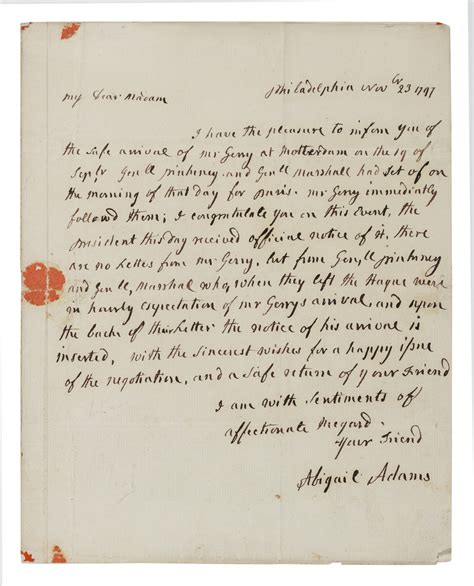 Philadelphia Novbr 23 1797
my Dear Madam
I have the pleasure to inform you of
the safe arrival of mr Gerry at Rotterdam on the 19 of
Sepbr Genll pinkney and Genll Marshall had set of on
the morning of that day for paris. mr Gerry immediatly
followd them; I congratulate you on this Event, the
president this day received official notice of it. there
are no Letters from mr Gerry, but from Genll pinkney
and Genll Marshal who, when they left the Hague were
in hourly expectation of mr Gerrys arrival, and upon
the back of their Letter the notice of his arrival is
inserted, with the sincerest wishes for a happy issue
of the negotiation, and a safe return of your Friend
I am with Sentiments of
affectionate Regard.
Your Friend
Abigail Adams